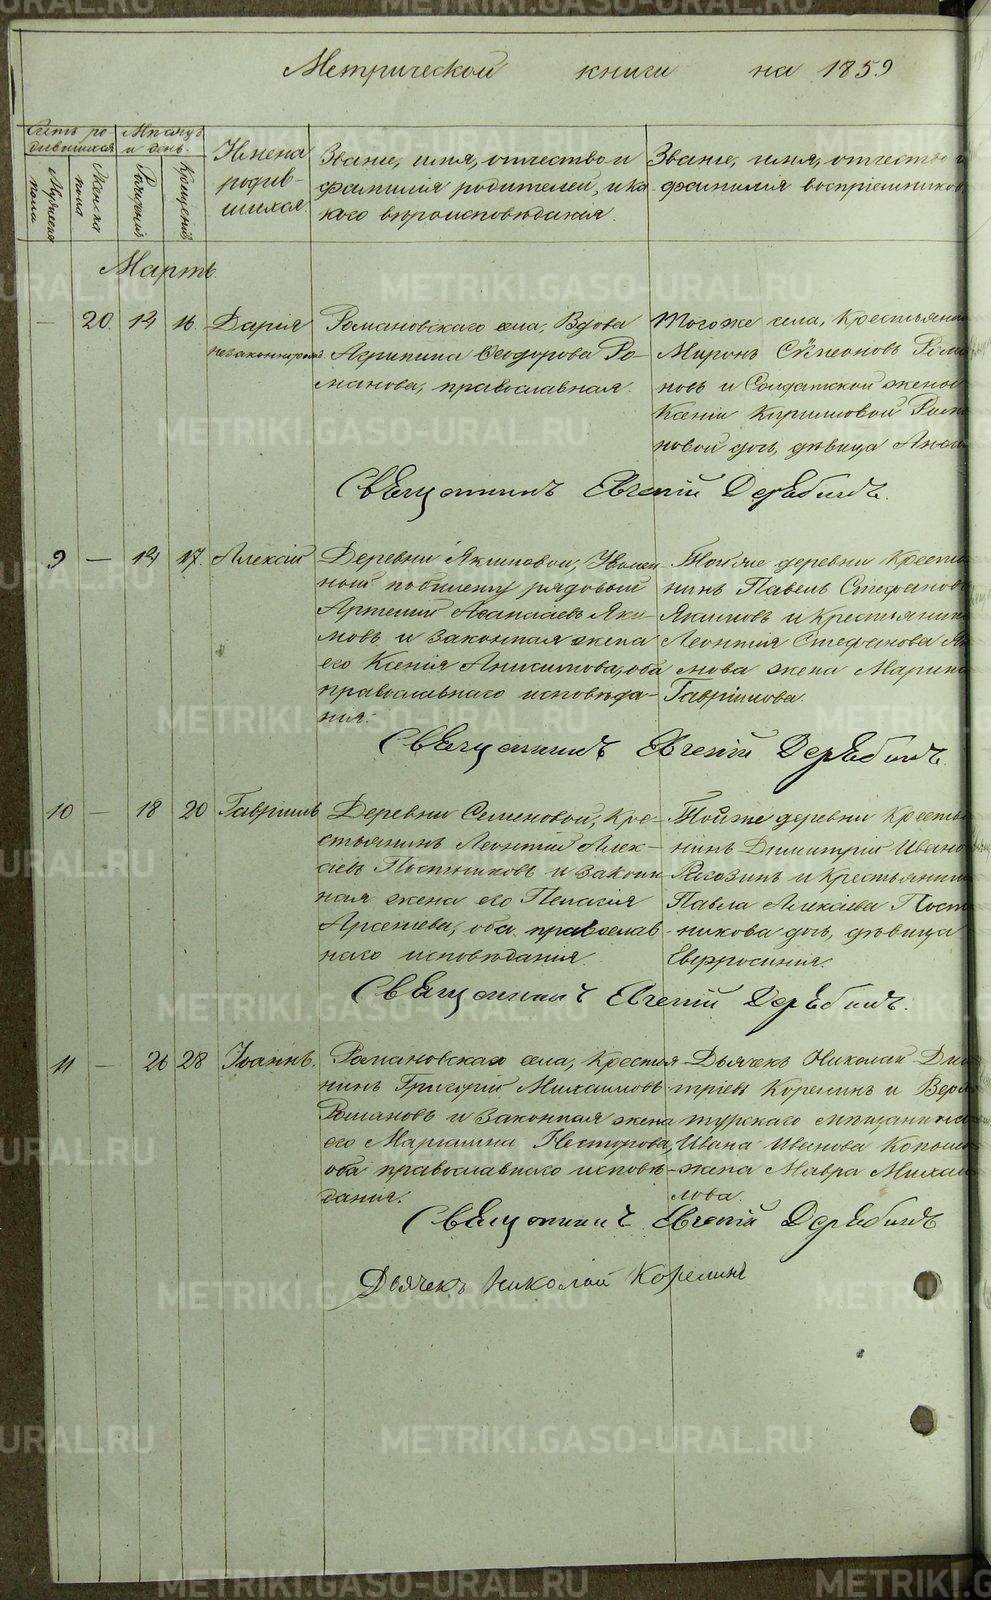 Метрической книги на 1859
Счетъ ро-
дившихся
Мужеска
пола
Женска
пола
Мѣсяцъ
и день.
Рожденія
Крещенія
Имена
родив-
шихся
Званіе, имя, отчество и
фамилія родителей, и ка-
кого вѣроисповѣданія.
Званіе, имя, отчество и
фамилія воспріемниковъ
Мартъ.
— 20. 14 16 Дарія
незаконнорожд
Романовскаго села, Вдова
Агрипина Ѳеодорова Ро-
манова, православная.
Тогоже села, Крестьянинъ
Миронъ Сѵмеоновъ Рома
новъ и Солдатской жены
Ксеніи Кириловой Рома
новой дочь, дѣвица
Священникъ Евгеній Дерябинъ.
9 — 14 17. Алексій
Деревни Якимовой, Уволен-
ный по билету рядовой
Артемій Аѳанасіевъ Яки-
мовъ и законная жена
его Ксенія Анисимова, оба
православнаго исповѣда-
нія.
Тойже деревни Крестья
нинъ Павелъ Стефановъ
Якимовъ и Крестьянина
Леонтія Стефанова Яки
мова жена Марина
Гавріилова.
Священникъ Евгеній Дерябинъ.
10 — 18 20 Гавріилъ
Деревни Семеновой, Кре-
стьянинъ Леонтій Алек-
сіевъ Постниковъ и Закон
ная жена его Пелагія
Арсеніева, оба православ-
наго исповѣданія.
Тойже деревни Крестья
нинъ Димитрій Ивано
Рагозинъ и Крестьянина
Павла Алексіева Пост
никова дочь, дѣвица
Евфросинія.
Священникъ Евгеній Дерябинъ.
11 — 26 28 Іоаннъ.
Романовскаго села, Крестья
нинъ Григорій Михаиловъ
Романовъ и Законная жена
его Маріамна Несторова,
оба православнаго исповѣ-
данія.
Дьячекъ Николай Дми
тріевъ Корелинъ и Верхо
турскаго мѣщанина
Ивана Иванова
жена Мавра Михаи
лова.
Священникъ Евгеній Дерябинъ
Дьячекъ Николай Корелинъ
METRIKI.GASO-URAL.RU